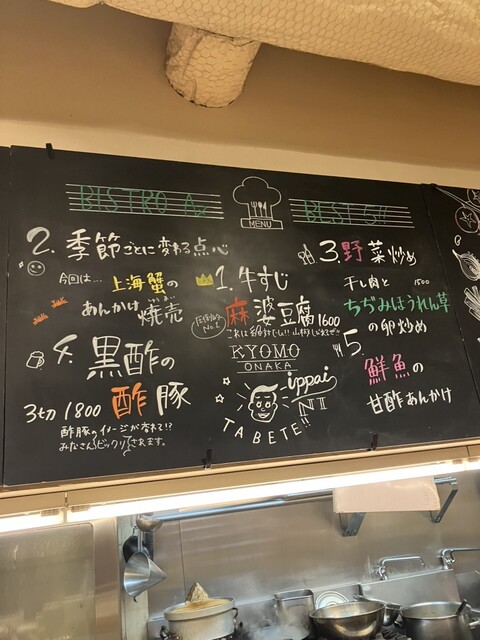 BISTRO A
BEST 5!!
MENU
2. 季節ごとに変わる点心
今回は… 上海蟹の
あんかけ焼売
1. 牛すじ
麻婆豆腐 1600
圧倒的人気No.1
これは絶対す!! 山椒しびれぜ!!
3. 野菜炒め
干し肉と 1500
ちぢみほうれん草
の卵炒め
4. 黒酢の
酢豚
3切 1800
酢豚のイメージが売れて!?
みなさんビックリされます。
KYOMO
ONAKA
ippai
NI
TABETE!!
5. 鮮魚の
甘酢あんかけ